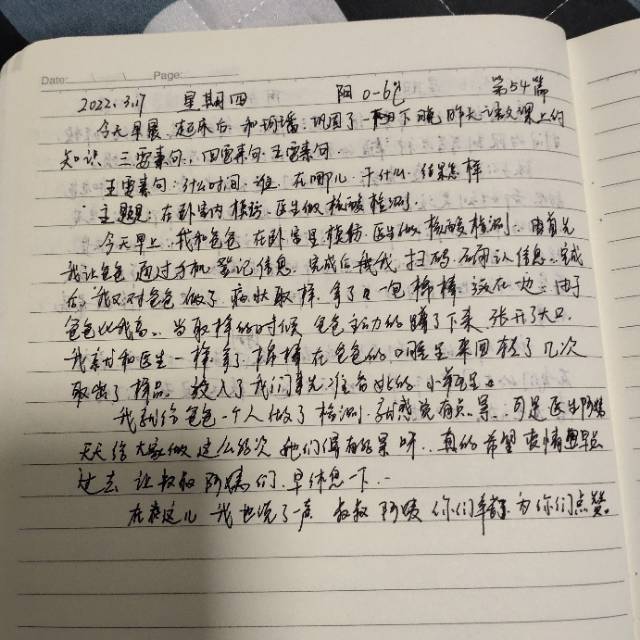 Date: Page:
2022.3.17 星期四 阳 0-6℃ 第54篇
今天早晨 起床后 和 巩固了一下 昨天语文课上的
知识 三要素句, 四要素句 五要素句
五要素句: 什么时间 谁 在哪儿 干什么 结果怎样
主题: 在卧室内模仿 医生做核酸检测.
今天早上, 我和爸爸 在卧室里模仿 医生做核酸检测. 首先
我让爸爸 通过手机 登记信息. 完成后 我 扫码 确认信息. 完成
后 我又对爸爸 做了 取样. 拿了 一包 棉棒 放在一边. 由于
爸爸比我高. 当取样的时候 爸爸主动的蹲了下来. 张开了大口
我就和医生一样拿了 棉棒 在爸爸的口腔里 来回转了几次
取出了样品. 放入了我们事先准备好的 小
我就给爸爸一个人 做了 检测 就感觉有点累. 可是医生阿姨
天天给大家做这么多次 她们得有多累呀. 真的希望疫情早点
过去 让叔叔阿姨们 早休息一下.
在这儿 我也说了一声 叔叔阿姨 你们辛苦 为你们点赞.